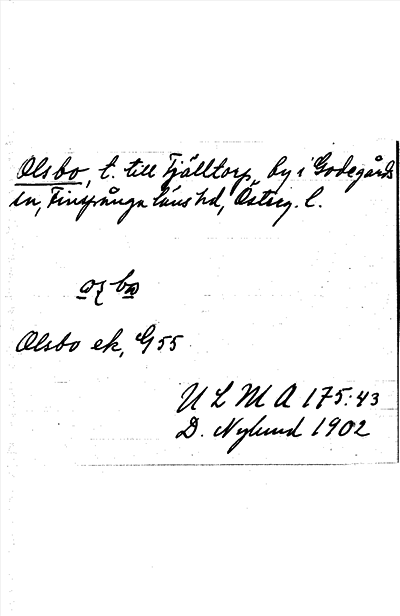 Olsbo, t. till Fjälltorp, by i Godegårds
sn, Finspånga läns hd, Österg. l.
Olsbo ek, G 55
U L M A 175:43
D. Nylund 1902